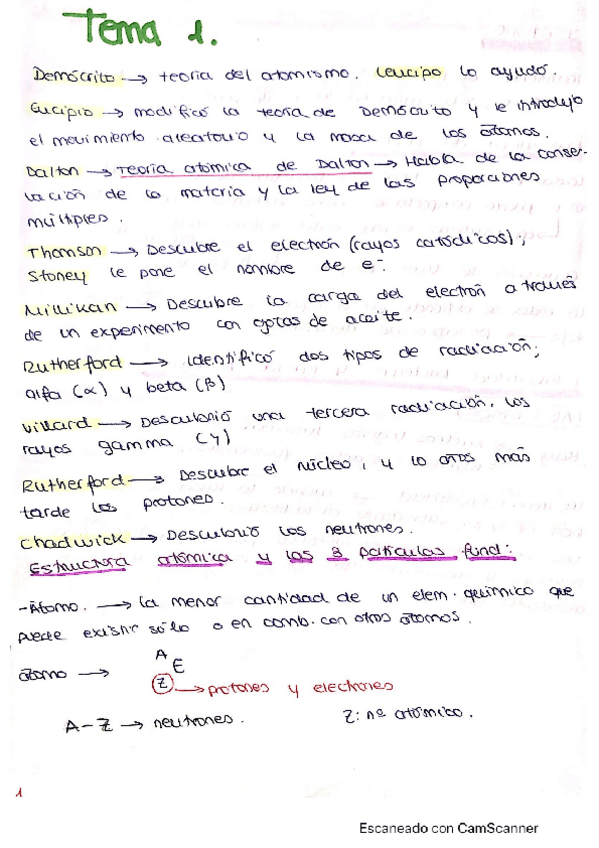 Tema 1.
Demócrito → teoría del atomismo. Leucipo lo ayudó.
Eucipio → modificó la teoría de Demócrito y le introdujo
el movimiento aleatorio y la masa de los átomos.
Dalton → Teoría atómica de Dalton → Habla de la conser-
vación de la materia y la ley de las proporciones
múltiples.
Thomson → Descubre el electrón (rayos catódicos);
Stoney le pone el nombre de e⁻.
Millikan → Descubre la carga del electrón a través
de un experimento con gotas de aceite.
Rutherford → identificó dos tipos de radiación;
alfa (α) y beta (β)
Villard → Descubrió una tercera radiación. Los
rayos gamma (γ)
Rutherford → Descubre el núcleo, y 10 años más
tarde los protones.
Chadwick → Descubrió los neutrones.
Estructura atómica y las 3 partículas fund:
-Átomo. → La menor cantidad de un elem. químico que
puede existir sólo o en comb. con otros átomos.
átomo → A E
Z → protones y electrones
A-Z → neutrones. Z: nº atómico.
1
Escaneado con CamScanner